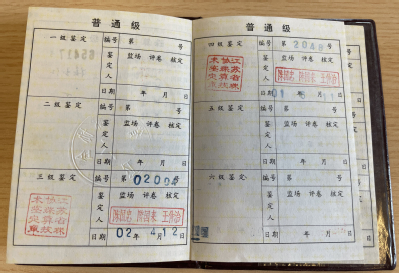 普通级
一级鉴定
编号
第 号
鉴定人
监场 评卷 核定
日期
年 月 日
二级鉴定
编号
第 号
鉴定人
监场 评卷 核定
日期
年 月 日
三级鉴定
编号
第 02004 号
鉴定人
监场 评卷 核定
日期
02年 4月12日
普通级
四级鉴定
编号
第 号
鉴定人
监场 评卷 核定
日期
年 月 日
五级鉴定
编号
第 号
鉴定人
监场 评卷 核定
日期
年 月 日
六级鉴定
编号
第 号
鉴定人
监场 评卷 核定
日期
年 月 日